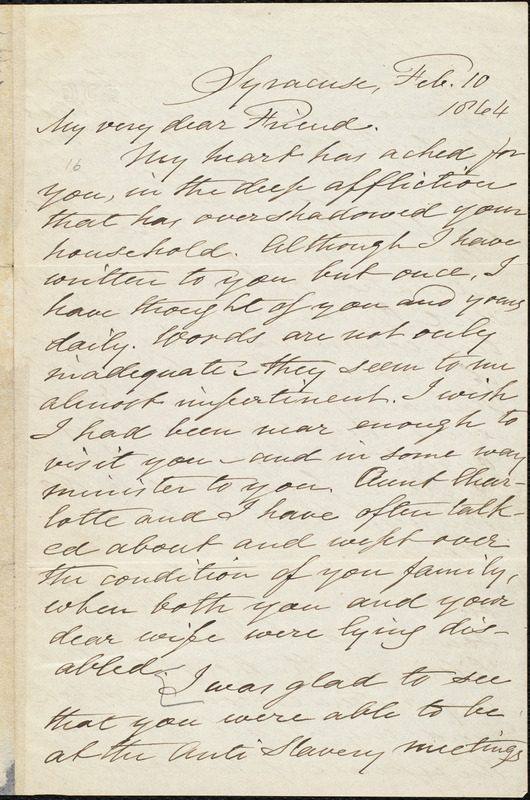 Syracuse, Feb. 10
1864
My very dear Friend.
16
My heart has ached for
you, in the deep affliction
that has overshadowed your
household. Although I have
written to you but once, I
have thought of you and yours
daily. Words are not only
inadequate - they seem to me
almost impertinent. I wish
I had been near enough to
visit you - and in some way
minister to you. Aunt Char-
lotte and I have often talk-
ed about and wept over
the condition of you family,
when both you and your
dear wife were lying dis-
abled.
I was glad to see
that you were able to be
at the Anti Slavery meetings